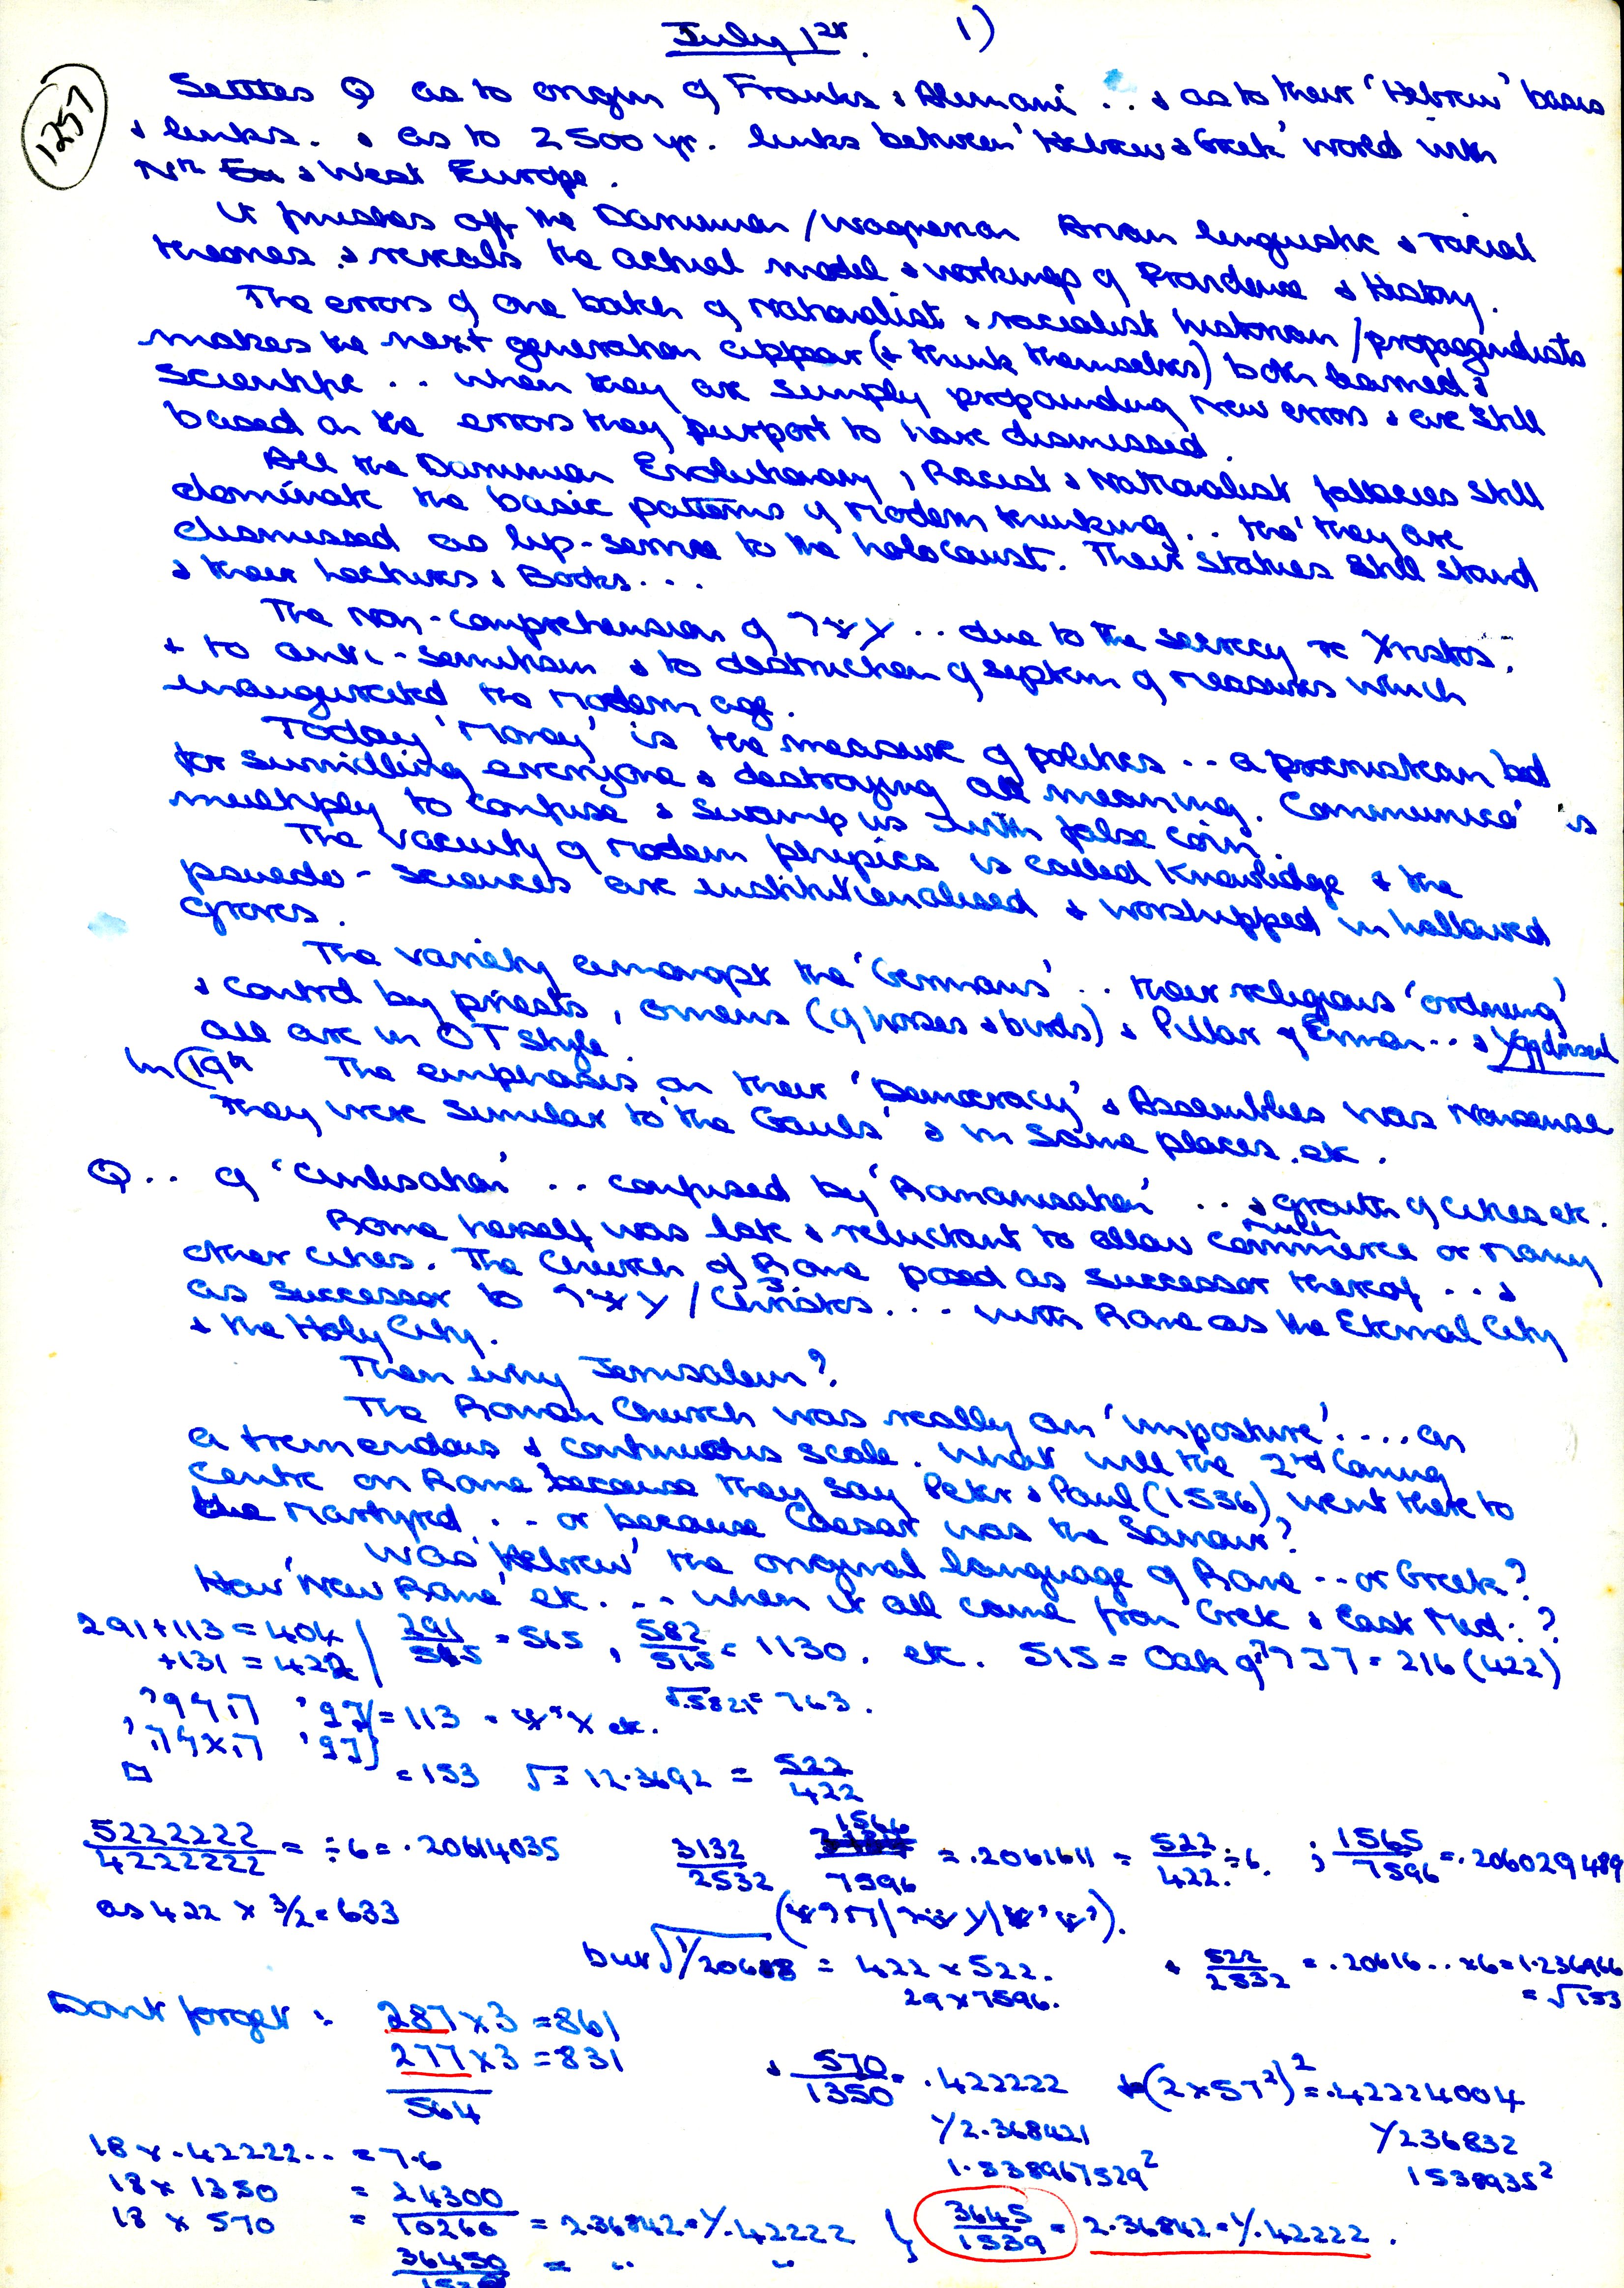 July 1st. 1)
1257
Settles Q as to origin of Franks & Alemani .. & as to their 'Hebrew' basis
& links. & as to 2500 yr. links between 'Hebrew & Greek' world with
Nth & West Europe.
It finishes off the Darwinian / Wagnerian Arian linguistic & racial
theories & reveals the actual model & workings of Providence & History.
The errors of one batch of nationalist & racialist historian / propagandists
makes the next generation appear (& think themselves) both learned &
scientific .. when they are simply propounding new errors & are still
based on the errors they purport to have dismissed.
All the Darwinian Evolutionary, Racist & Nationalist fallacies still
dominate the basic patterns of modern thinking .. tho' they are
dismissed as lip-service to the holocaust. Their statues still stand
& their Lectures & Books ...
The non-comprehension of .. due to the secrecy re Xristos,
+ to anti-semitism & to destruction of system of measures which
inaugurated the modern age.
Today 'Money' is the measure of politics .. a procrustean bed
for swindling everyone & destroying all meaning. is
multiply to confuse & swamp us with false coin.
The vacuity of modern physics is called Knowledge & the
psuedo-sciences are institutionalised & worshipped in hallowed
Groves.
The variety amongst the 'Germans' .. their religious 'ordnung'
& control by priests, omens (of horses & birds) & Pillar of Erman .. & Yggdrasil
all are in OT style.
In 19th The emphasis on their 'Democracy' & Assemblies was nonsense
They were similar to 'the Gauls' & in same places. etc.
Q .. of 'Civilisation' .. confused by 'Romanisation' .. & growth of cities etc.
Rome herself was late & reluctant to allow much commerce or many
other cities. The Church of Rome posed as successor thereof ... &
as successor to / Christos ... with Rome as the Eternal City
& the Holy City.
Then why Jerusalem?
The Roman Church was really an 'imposture' .... on
a tremendous & continuous scale. What will the 2nd Coming
Centre on Rome because they say Peter & Paul (1536) went there to
be martyred .. or because Caesar was the Saviour?
Was 'Hebrew' the original language of Rome .. or Greek?
How 'New Rome' etc. ... when it all came from Greek & East Med.?
291+113 = 404 | 291/515 = 565, 582/515 = 1130. etc. 515 = Oak of = 216 (422)
+131 = 422
√.5821 = 763.
= 113 = etc.
= 153 √= 12.3692 = 522/422
5222222/4222222 = ÷6 = .20614035 3132/2532 1566/7596 = .2061611 = 522/422 ÷6. ; 1565/7596 = .206029489
as 422 × 3/2 = 633
but = 422 × 522. & 522/2532 = .20616.. ×6 = 1.236966
29 × 7596. = √153
Dont forget : 287 × 3 = 861
277 × 3 = 831
564
& 570/1350 = .422222 (2×57²)² = .42224004
1/2.368421 1/236832
1.538967529² 1538935²
18 × .42222.. = 7.6
18 × 1350 = 24300
18 × 570 = 10260 = 2.36842 = 1/.42222 3645/1539 = 2.36842 = 1/.42222.
36450 = " "